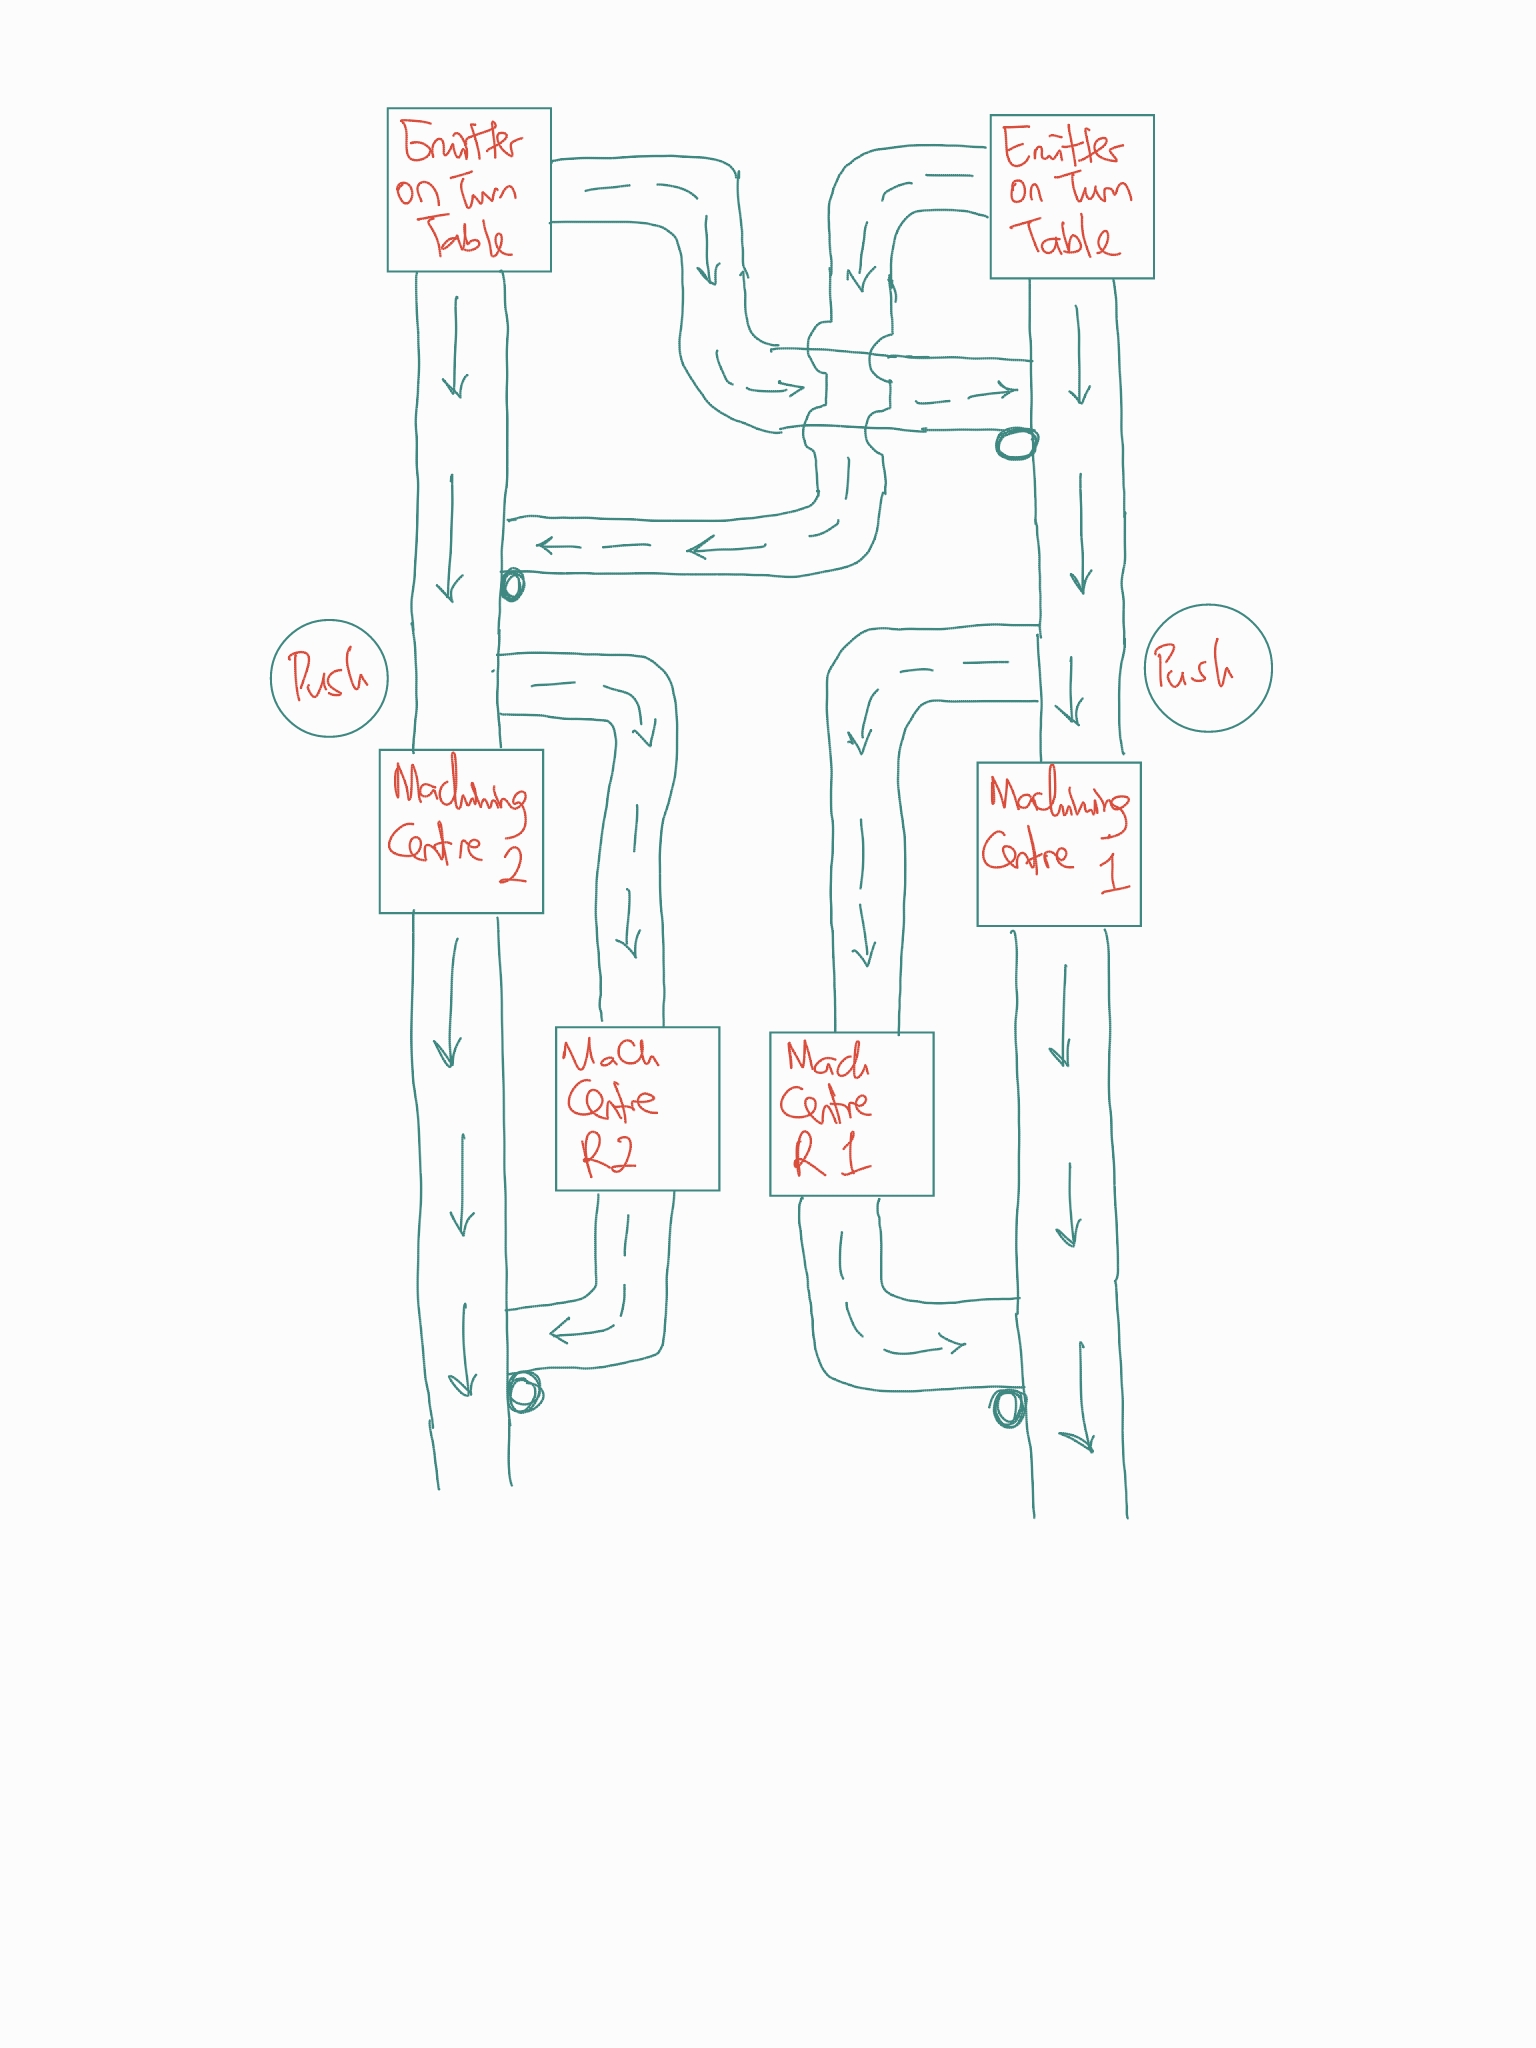 Emitter
on Turn
Table
Emitter
on Turn
Table
Push
Push
Machining
Centre 2
Machining
Centre 1
Mach
Centre
R2
Mach
Centre
R1